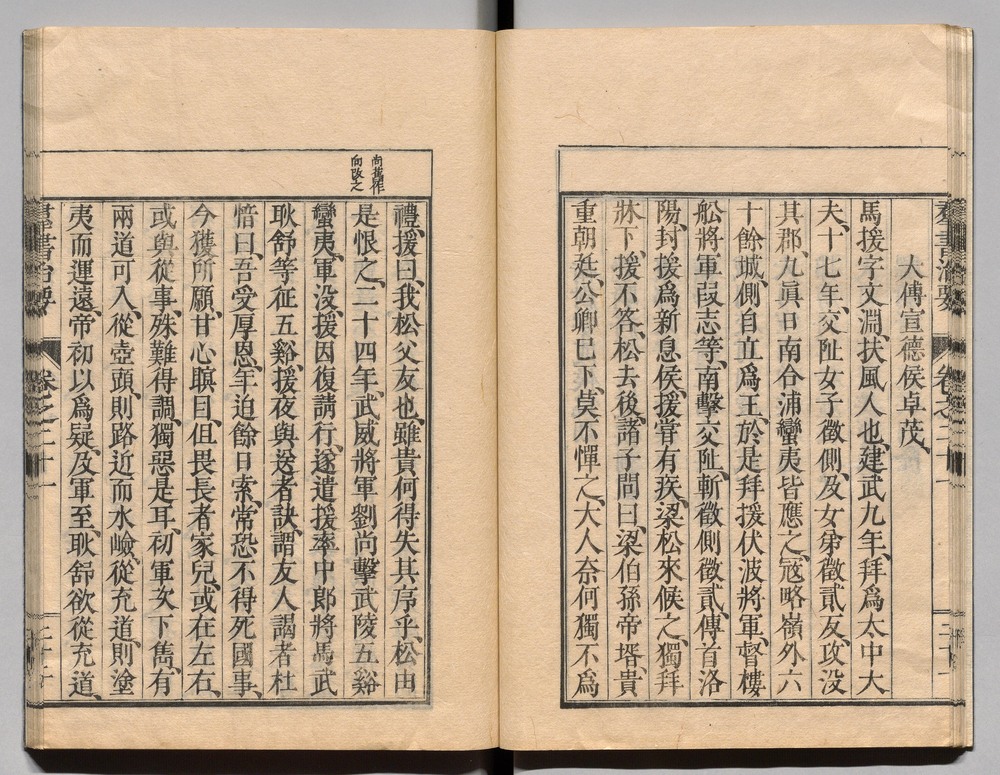 大傅宣德侯卓茂、
馬援字文淵、扶風人也、建武九年、拜爲太中大
夫、十七年、交阯女子徵側、及女弟徵貳友、攻没
其郡、九眞日南合浦蠻夷皆應之、寇略嶺外六
十餘城、側自立爲王、於是拜援伏波將軍、督樓
舩將軍段志等、南擊交阯、斬徵側徵貳、傳首洛
陽、封援爲新息侯、援甞有疾、梁松來候之、獨拜
牀下、援不答、松去後、諸子問曰、梁伯孫帝壻、貴
重朝廷、公卿已下、莫不憚之、大人奈何獨不爲
尚舊作
向改之
禮、援曰、我松父友也、雖貴何得失其序乎、松由
是恨之、二十四年、武威將軍劉尚擊武陵五谿
蠻夷、軍没、援因復請行、遂遣援率中郎將馬武
耿舒等征五谿、援夜與送者訣、謂友人謁者杜
愔曰、吾受厚恩、年迫餘日索、常恐不得死國事、
今獲所願、甘心瞑目、但畏長者家兒、或在左右、
或與從事、殊難得調、獨惡是耳、初軍次下雋、有
兩道可入、從壺頭、則路近而水嶮、從充道、則塗
夷而運遠、帝初以爲疑、及軍至、耿舒欲從充道、
羣書治要
卷之二十一